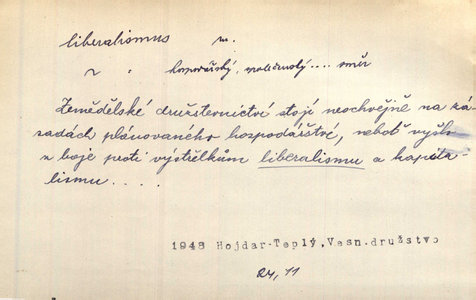 liberalismus m.
~ . hospodářský, společenský.... směr
Zemědělské družstevnictví stojí neochvějně na zá
sadách plánovaného hospodářství, neboť vyšlo
z boje proti výstřelkům liberalismu a kapita-
lismu.....
1948 Hojdar-Teplý,Vesn.družstvo
24,11